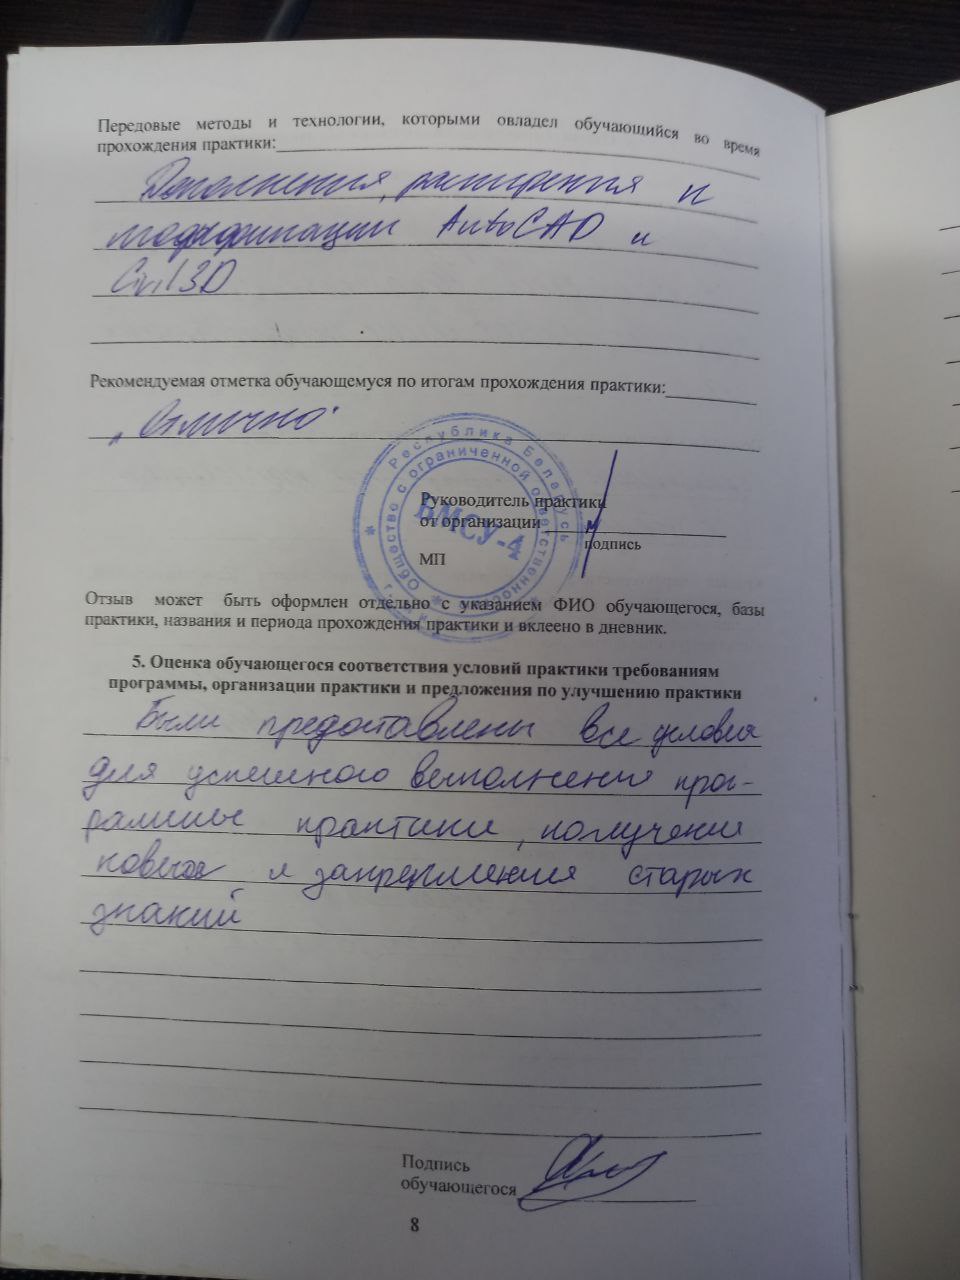 Передовые методы и технологии, которыми овладел обучающийся во время
прохождения практики:
Дополнения, расширения и
модификации AutoCAD и
Civil 3D
Рекомендуемая отметка обучающемуся по итогам прохождения практики:
"Отлично"
Республика Беларусь
Общество с ограниченной ответственностью
ВМСУ-4
Руководитель практики
от организации
подпись
МП
Отзыв может быть оформлен отдельно с указанием ФИО обучающегося, базы
практики, названия и периода прохождения практики и вклеено в дневник.
5. Оценка обучающегося соответствия условий практики требованиям
программы, организации практики и предложения по улучшению практики
Были предоставлены все условия
для успешного выполнения прог-
раммы практики, получения
новых и закрепления старых
знаний
Подпись
обучающегося
8